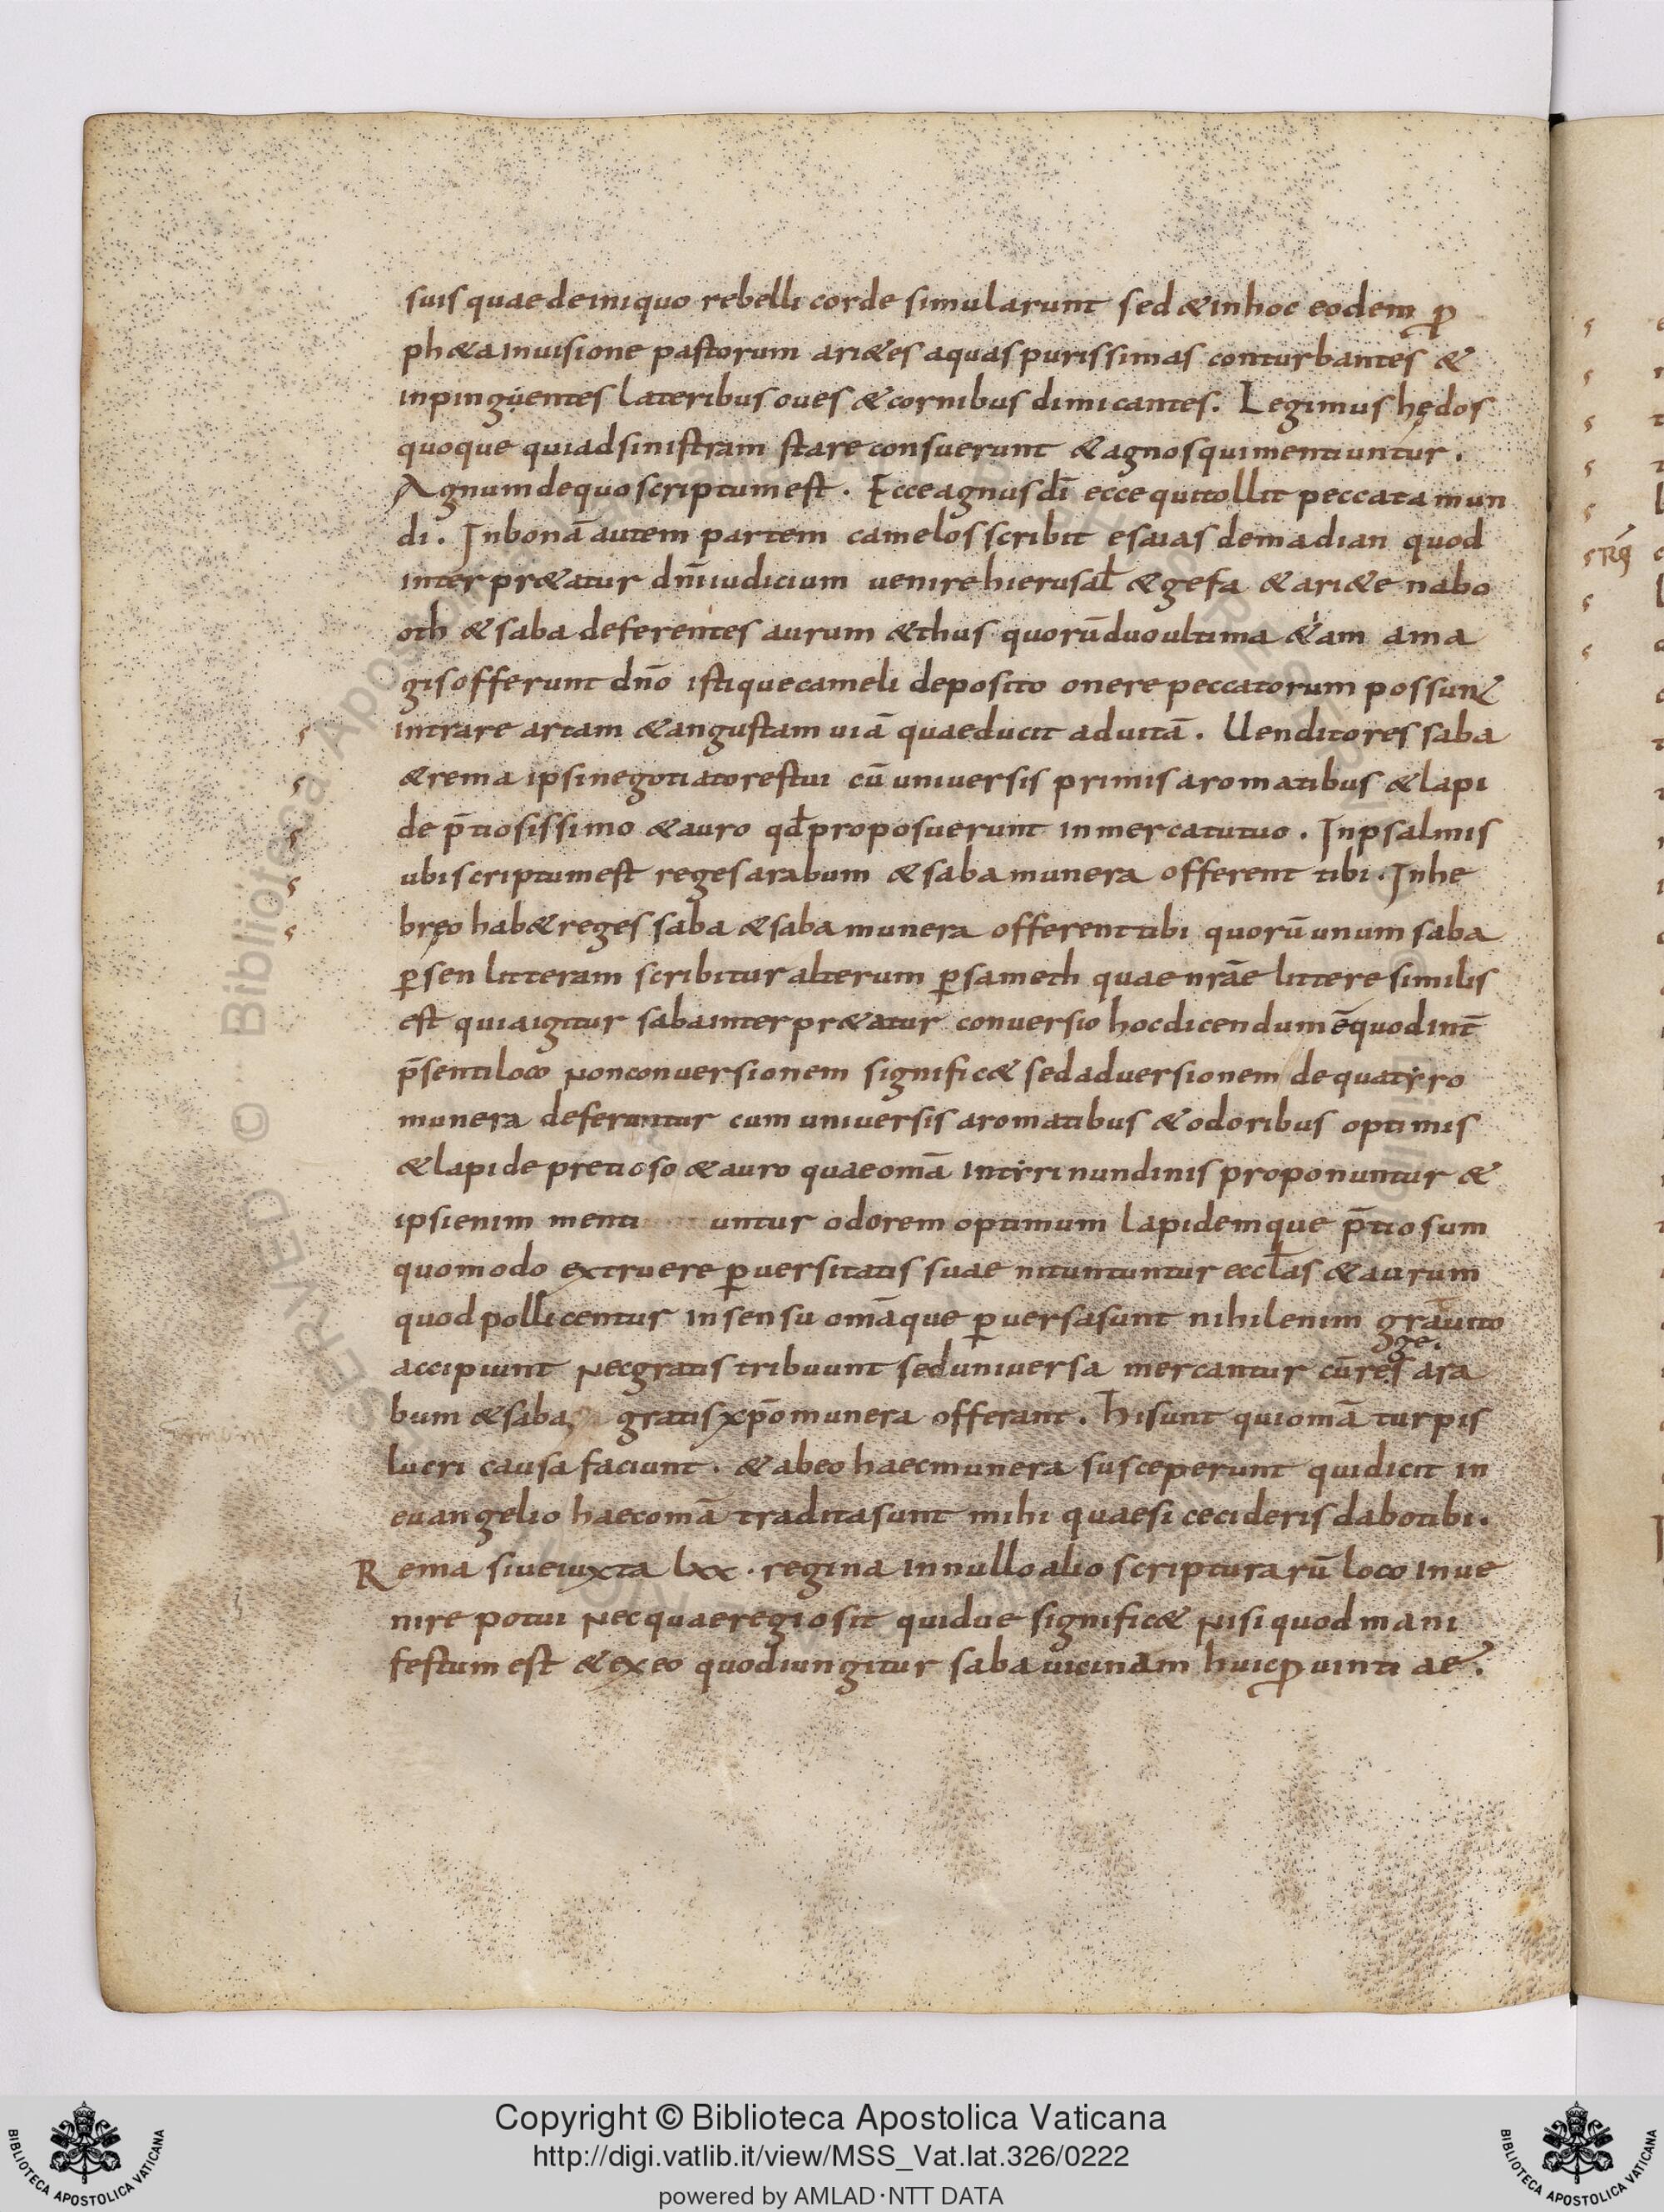 suis quae de iniquo rebelli corde simularunt sed & in hoc eodem ꝓ
ph&a in uisione pastorum ari&es aquas purissimas conturbantes &
inpinguentes lateribus oues & cornibus dimicantes. Legimus hędos
quoque qui ad sinistram stare consuerunt & agnos qui mentiuntur.
Agnum de quo scriptum est. Ecce agnus dī ecce qui tollit peccata mun
di. In bonā autem partem camelos scribit esaias de madian quod
interpr&atur dn̄i iudicium uenire hierusal̄ & gefa & ari&e nabo
oth & saba deferentes aurum & thus quorū duo ultima &iam a ma
gis offerunt dn̄o istique cameli deposito onere peccatorum possun&
intrare artam & angustam uiā quae ducit ad uitā. Uenditores saba
& rema ipsi negotiatores tui cū uniuersis primis aromatibus & lapi
de p̄tiosissimo & auro qd̄ proposuerunt in mercatu tuo. In psalmis
ubi scriptum est reges arabum & saba munera offerent tibi. In he
bręo hab& reges saba & saba munera offerent tibi quorū unum saba
ꝑ sen litteram scribitur alterum ꝑ sameth quae nrāe littere similis
est quia igitur saba interpr&atur conuersio hoc dicendum ē quod int̄
p̄senti loco non conuersionem signific& sed aduersionem de qua tyro
munera deferuntur cum uniuersis aromatibus & odoribus optimis
& lapide pretioso & auro quae omā in tyri nundinis proponuntur &
ipsi enim menti untur odorem optimum lapidemque p̄tiosum
quomodo extruere ꝑuersitatis suae nituntuntur eccl̄as & aurum
quod pollicentur in sensu omāque ꝑuersa sunt nihil enim grauito
accipiunt nec gratis tribuunt sed uniuersa mercantur cū reges ara
bum & saba gratis xp̄o munera offerant. Hi sunt qui omā turpis
lucri causa faciunt. & ab eo haec munera susceperunt qui dicit in
euangelio haec omā tradita sunt mihi quae si cecideris dabo tibi.
Rema siue iuxta lxx. regina in nullo alio scripturarū loco inue
nire potui nec quae regio sit quidue signific& nisi quod mani
festum est & ex eo quod iungitur saba uicinam huic ꝓuintiae.
Copyright © Biblioteca Apostolica Vaticana
http://digi.vatlib.it/view/MSS_Vat.lat.326/0222
powered by AMLAD·NTT DATA
BIBLIOTECA APOSTOLICA VATICANA
BIBLIOTECA APOSTOLICA VATICANA